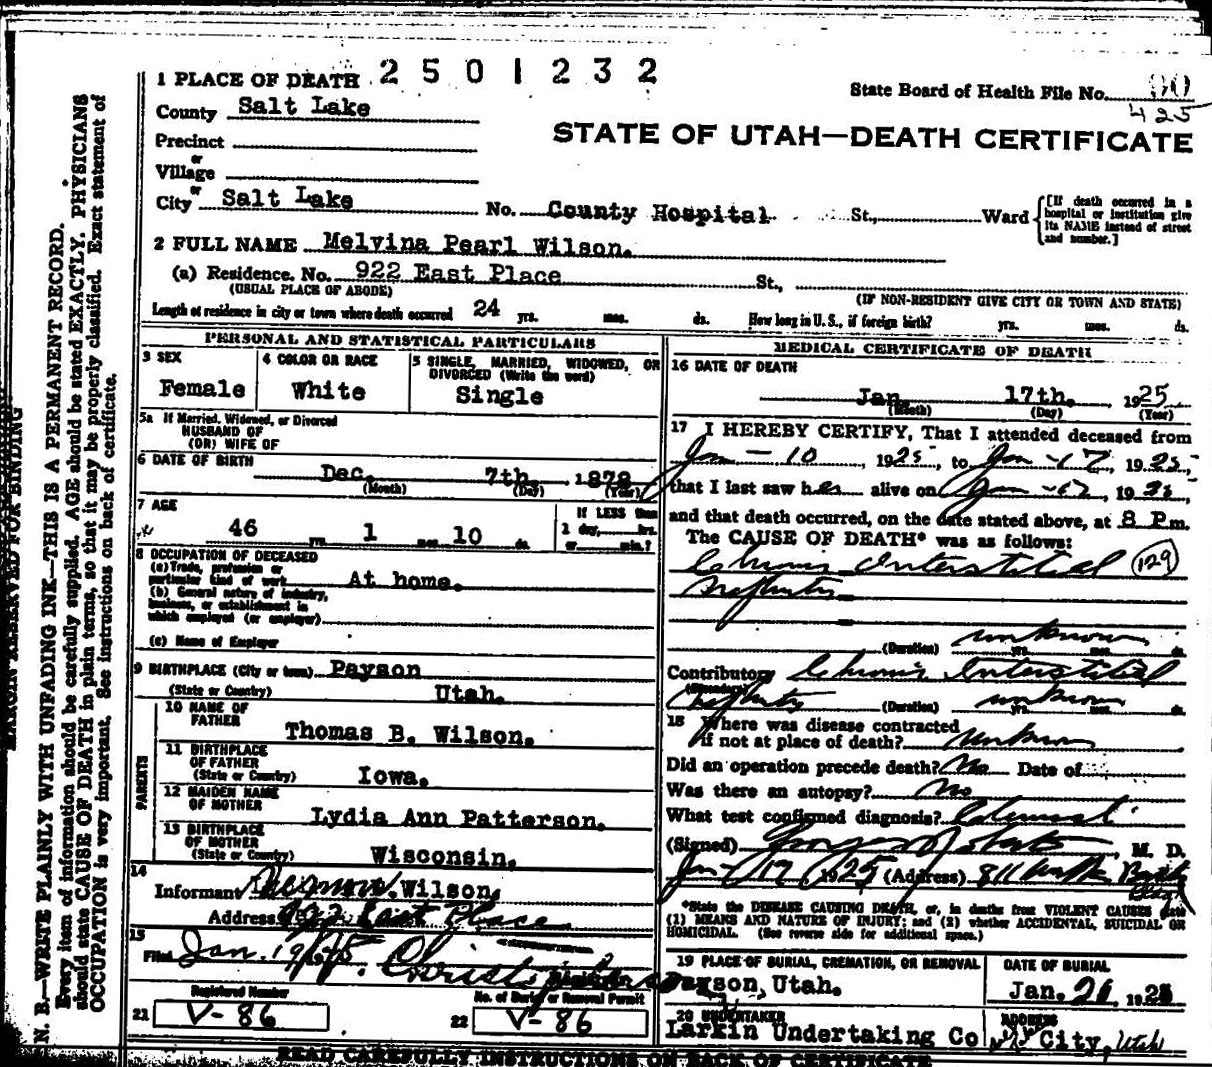 1 PLACE OF DEATH 2501232
State Board of Health File No. 90
425
County Salt Lake
STATE OF UTAH—DEATH CERTIFICATE
Precinct
or
Village
or
City Salt Lake No. County Hospital St., Ward
[If death occurred in a hospital or institution give its NAME instead of street and number.]
2 FULL NAME Melvina Pearl Wilson.
(a) Residence. No. 922 East Place St.,
(USUAL PLACE OF ABODE) (IF NON-RESIDENT GIVE CITY OR TOWN AND STATE)
Length of residence in city or town where death occurred 24 yrs. mos. ds. How long in U. S., if foreign birth? yrs. mos. ds.
PERSONAL AND STATISTICAL PARTICULARS
3 SEX
Female
4 COLOR OR RACE
White
5 SINGLE, MARRIED, WIDOWED, OR
DIVORCED (Write the word)
Single
5a If Married, Widowed, or Divorced
HUSBAND OF
(OR) WIFE OF
6 DATE OF BIRTH
Dec. 7th. 1878
(Month) (Day) (Year)
7 AGE
46 yrs. 1 mos. 10 ds.
If LESS than
1 day, hrs.
or min.?
8 OCCUPATION OF DECEASED
(a) Trade, profession or
particular kind of work At home.
(b) General nature of industry,
business, or establishment in
which employed (or employer)
(c) Name of Employer
9 BIRTHPLACE (City or town) Payson
(State or Country) Utah.
PARENTS
10 NAME OF
FATHER
Thomas B. Wilson.
11 BIRTHPLACE
OF FATHER
(State or Country) Iowa.
12 MAIDEN NAME
OF MOTHER
Lydia Ann Patterson.
13 BIRTHPLACE
OF MOTHER
(State or Country) Wisconsin.
14
Informant Wilson.
Address 922 East Place
15
Filed Jan. 19/25
Registered Number
21 V-86
No. of Burial or Removal Permit
22 V-86
MEDICAL CERTIFICATE OF DEATH
16 DATE OF DEATH
Jan. 17th. 1925
(Month) (Day) (Year)
17 I HEREBY CERTIFY, That I attended deceased from
Jan - 10, 1925, to Jan - 17, 1925,
that I last saw her alive on Jan - 17, 1925
and that death occurred, on the date stated above, at 8 P m.
The CAUSE OF DEATH* was as follows:
Chronic Interstitial (129)
Nephritis
unknown
(Duration) yrs. mos. ds.
Contributory Chronic Interstitial
(Secondary) Nephritis (Duration) unknown yrs. mos. ds.
18 Where was disease contracted
if not at place of death? Unknown
Did an operation precede death? No Date of
Was there an autopsy? No
What test confirmed diagnosis?
(Signed) George Roberts, M. D.
Jan 17 1925 (Address) 811 Bldg
*State the DISEASE CAUSING DEATH, or, in deaths from VIOLENT CAUSES state
(1) MEANS AND NATURE OF INJURY; and (2) whether ACCIDENTAL, SUICIDAL OR
HOMICIDAL. (See reverse side for additional space.)
19 PLACE OF BURIAL, CREMATION, OR REMOVAL
Payson, Utah.
DATE OF BURIAL
Jan. 20, 1925
20 UNDERTAKER
Larkin Undertaking Co
ADDRESS
City, Utah
READ CAREFULLY INSTRUCTIONS ON BACK OF CERTIFICATE
MARGIN RESERVED FOR BINDING
N. B.—WRITE PLAINLY WITH UNFADING INK—THIS IS A PERMANENT RECORD.
Every item of information should be carefully supplied. AGE should be stated EXACTLY. PHYSICIANS
should state CAUSE OF DEATH in plain terms, so that it may be properly classified. Exact statement of
OCCUPATION is very important. See instructions on back of certificate.